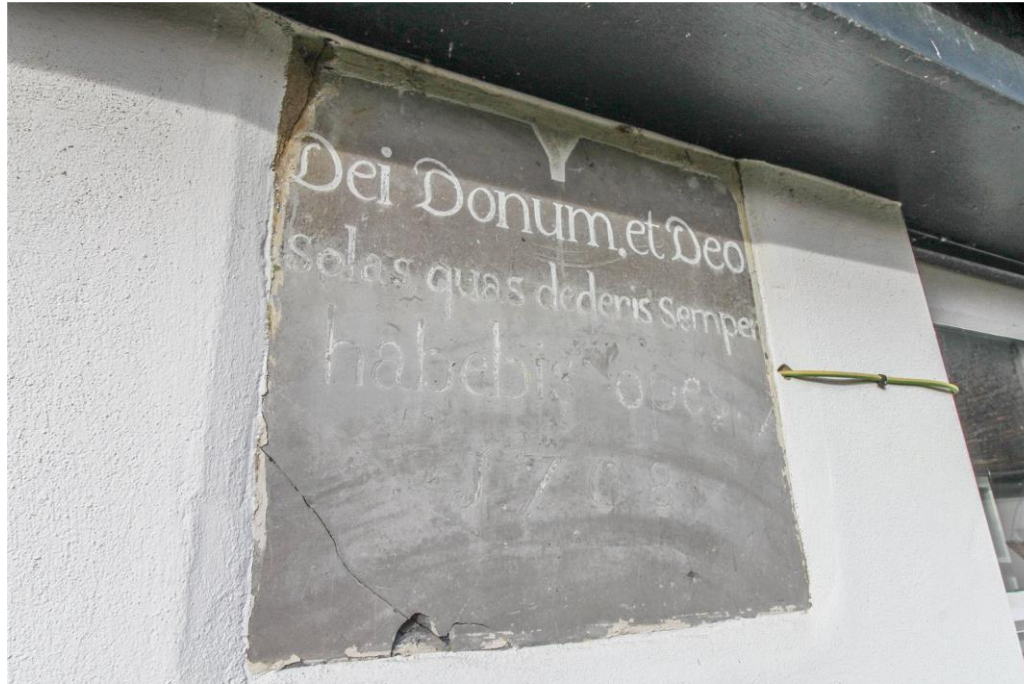 Dei Donum.et Deo
solas quas dederis Semper
habebis opes.
1768